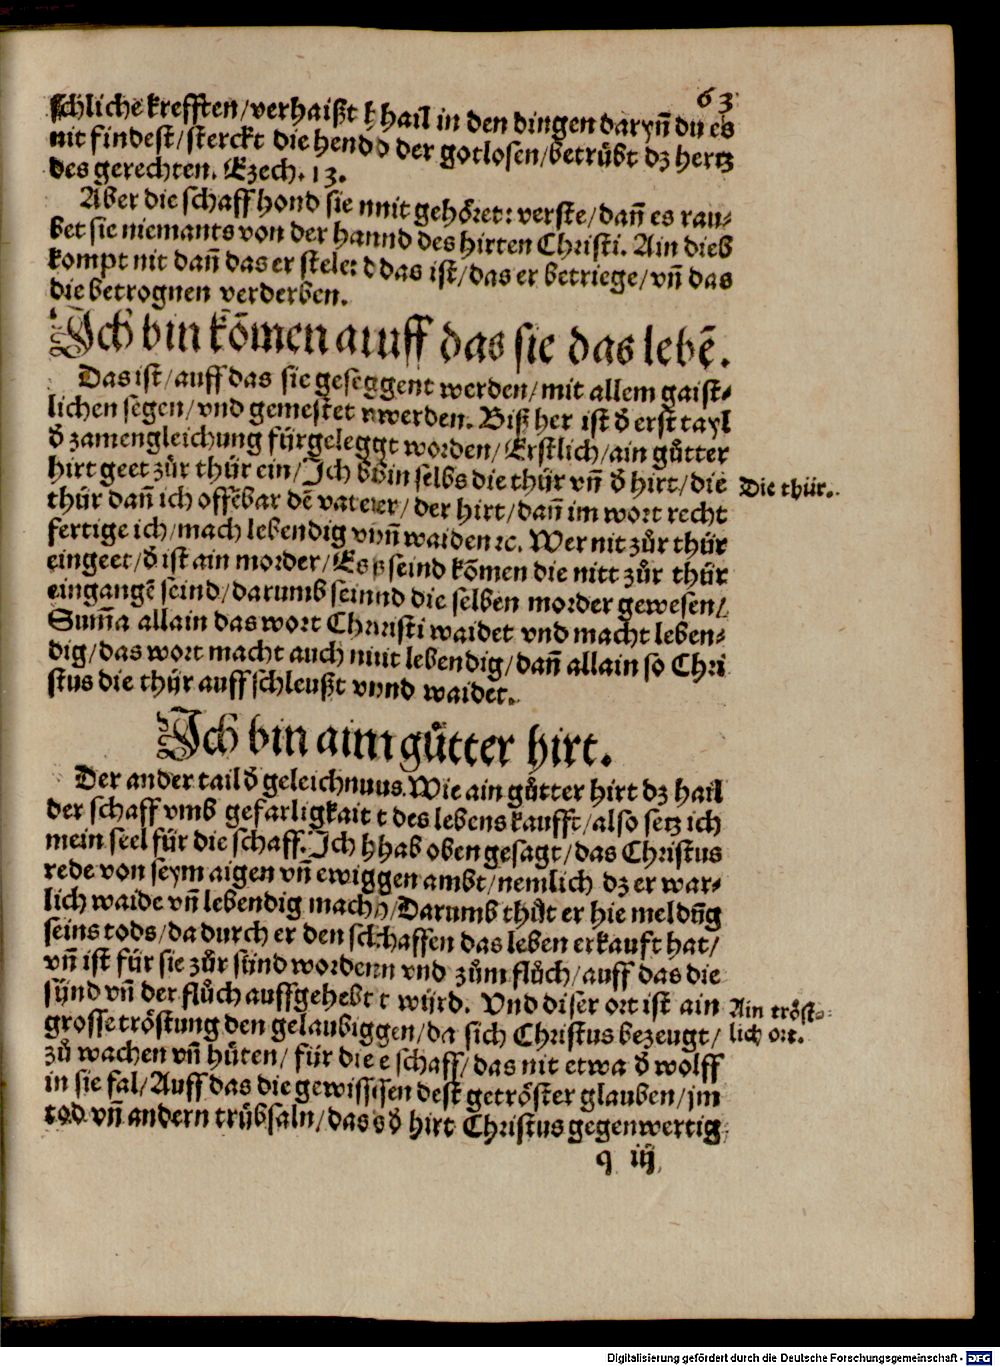 63
schliche krefften/verhaißt hail in den dingen darynn̄ du es
nit findest/sterckt die hend d der gotlosen/betrübt dz hertz
des gerechten. Ezech. 13.
Aber die schaff hond sie nnit gehöret: verste/dan̄ es rau-
bet sie niemants von der hannd des hirten Christi. Ain dieb
kompt nit dan̄ das er stele: d das ist/das er betriege/vn̄ das
die betrognen verderben.
Ich bin kōmen auuff das sie das lebē.
Das ist/auff das sie geseggent werden/mit allem gaist-
lichen segen/vnd gemestet wwerden. Biß her ist d̄ erst tayl
d̄ zamengleichung fürgeleggt worden/Erstlich/ain gůtter
hirt geet zůr thür ein/Ich bbin selbs die thür vn̄ d̄ hirt/die
Die thür.
thür dan̄ ich offēbar dē vateer/der hirt/dan̄ im wort recht
fertige ich/mach lebendig vnn̄ waiden ꝛc. Wer nit zůr thür
eingeet/d̄ ist ain morder/Es ß seind kōmen die nitt zůr thür
eingangē seind/darumb seinnd die selben morder gewesen/
Sum̄a allain das wort Chrristi waidet vnd macht leben-
dig/das wort macht auch niiit lebendig/dan̄ allain so Chri
stus die thür auff schleußt vnnd waidet.
Ich bin aim gůtter hirt.
Der ander tail d̄ geleichnuus. Wie ain gůtter hirt dz hail
der schaff vmb gefarligkait t des lebens kaufft/also setz ich
mein seel für die schaff. Ich hhab oben gesagt/das Christus
rede von seym aigen vn̄ ewiggen ambt/nemlich dz er war-
lich waide vn̄ lebendig mach/Darumb thůt er hie meldūg
seins tods/da durch er den schhaffen das leben erkauft hat/
vn̄ ist für sie zůr sünd wordenn vnd zům flůch/auff das die
sünd vn̄ der flůch auffgehebt t wijrd. Vnd diser ort ist ain
Ain tröst-
grosse tröstung den gelaubiggen/da sich Christus bezeugt/
lich ort.
zů wachen vn̄ hüten/für die e schaff/das nit etwa d̄ wolff
in sie fal/Auff das die gewissisen dest getröster glauben/jm
tod vn̄ andern trübsaln/das d d̄ hirt Christus gegenwertig
q iij
Digitalisierung gefördert durch die Deutsche Forschungsgemeinschaft - DFG